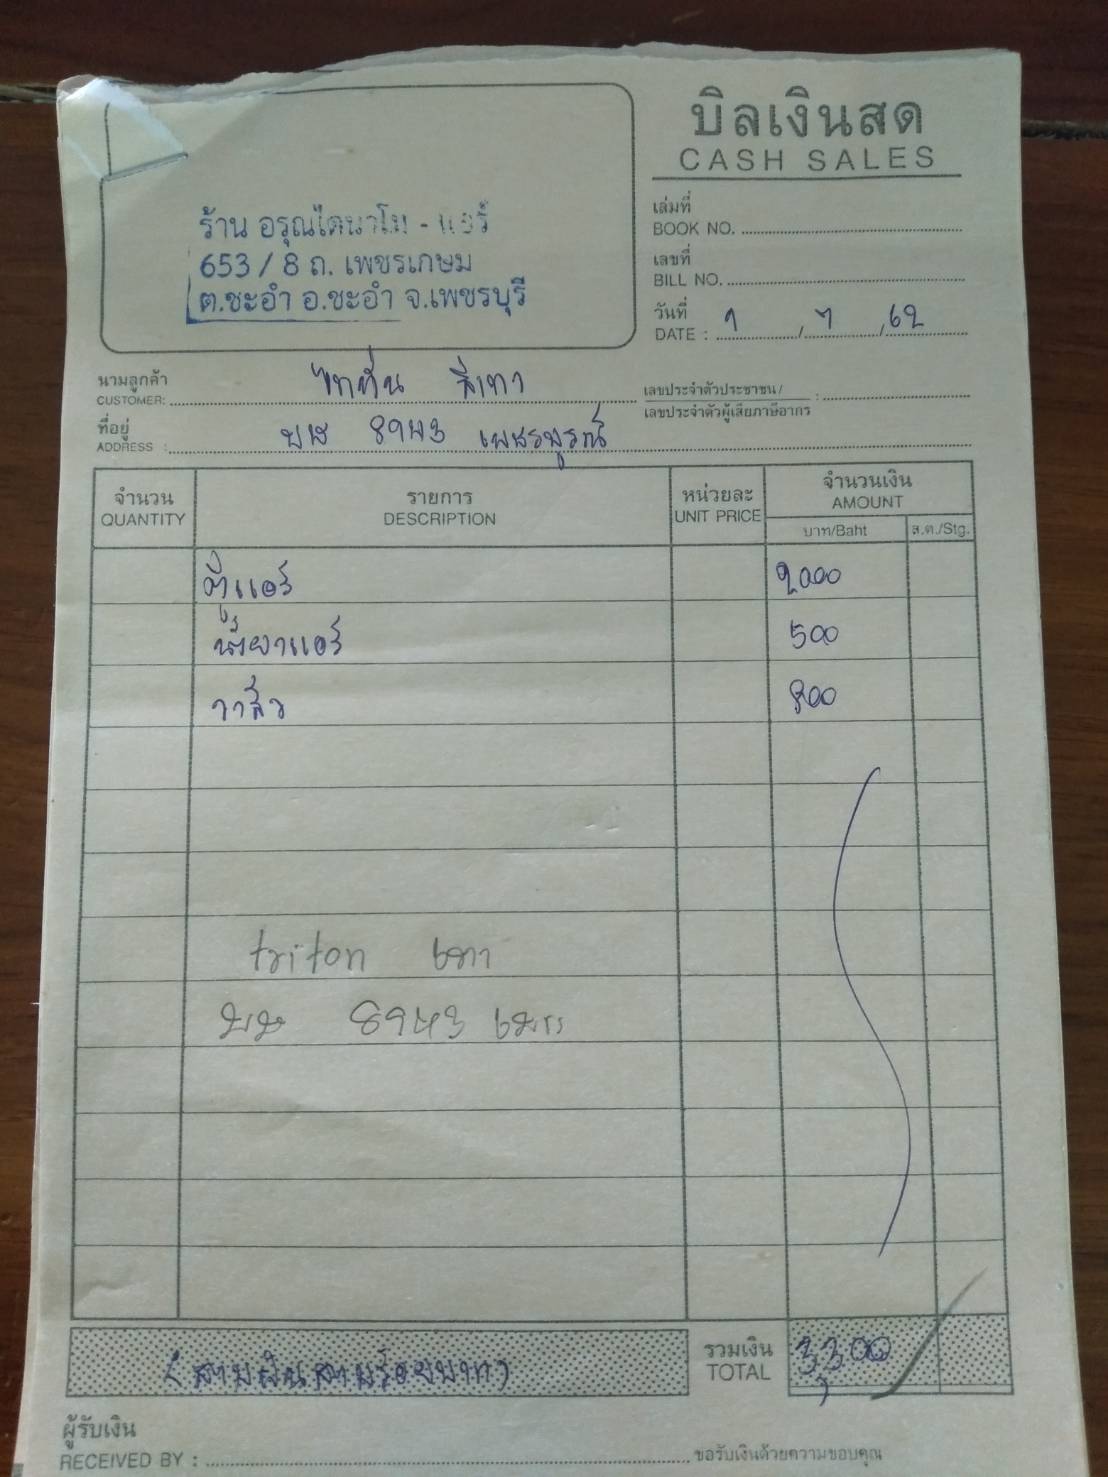 บิลเงินสด
CASH SALES
ร้าน อรุณไดนาโม - แอร์
653 / 8 ถ. เพชรเกษม
ต.ชะอำ อ.ชะอำ จ.เพชรบุรี
เล่มที่
BOOK NO.
เลขที่
BILL NO.
วันที่
DATE : 1 / 7 / 62
นามลูกค้า
CUSTOMER: ไททั่น สีเทา
เลขประจำตัวประชาชน /
เลขประจำตัวผู้เสียภาษีอากร :
ที่อยู่
ADDRESS : 8943 เพชรบูรณ์
จำนวน รายการ หน่วยละ จำนวนเงิน
QUANTITY DESCRIPTION UNIT PRICE AMOUNT
บาท/Baht ส.ต./Stg.
ตู้แอร์ 2000
น้ำยาแอร์ 500
วาล์ว 800
triton เทา
8943 เพชร
(สามพันสามร้อยบาท) รวมเงิน 3,300
TOTAL
ผู้รับเงิน
RECEIVED BY : ขอรับเงินด้วยความขอบคุณ